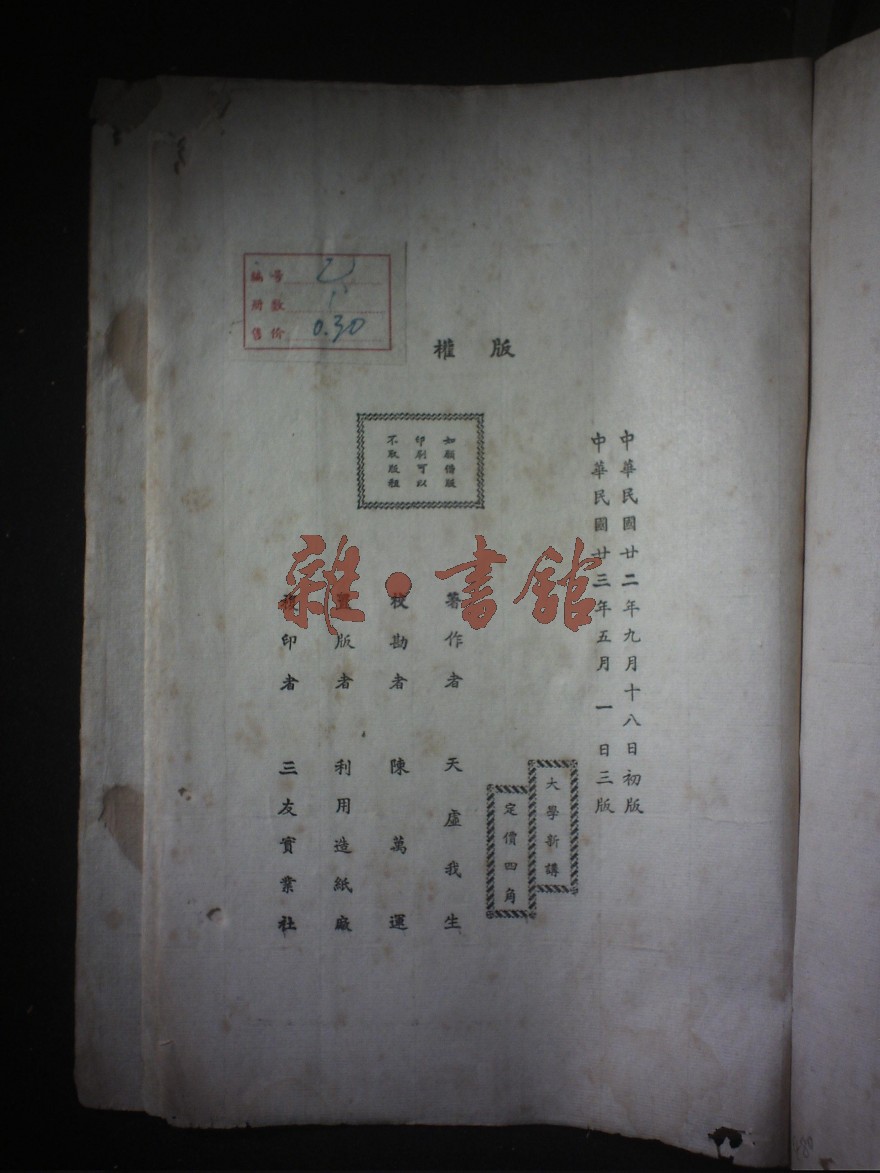 版權
中華民國廿二年九月十八日初版
中華民國廿三年五月一日三版
大學新講
定價四角
如願借版
印刷可以
不取版租
著作者 天虛我生
校勘者 陳萬運
置版者 利用造紙廠
印者 三友實業社
编号
册数
售价 0.30
雜·書館